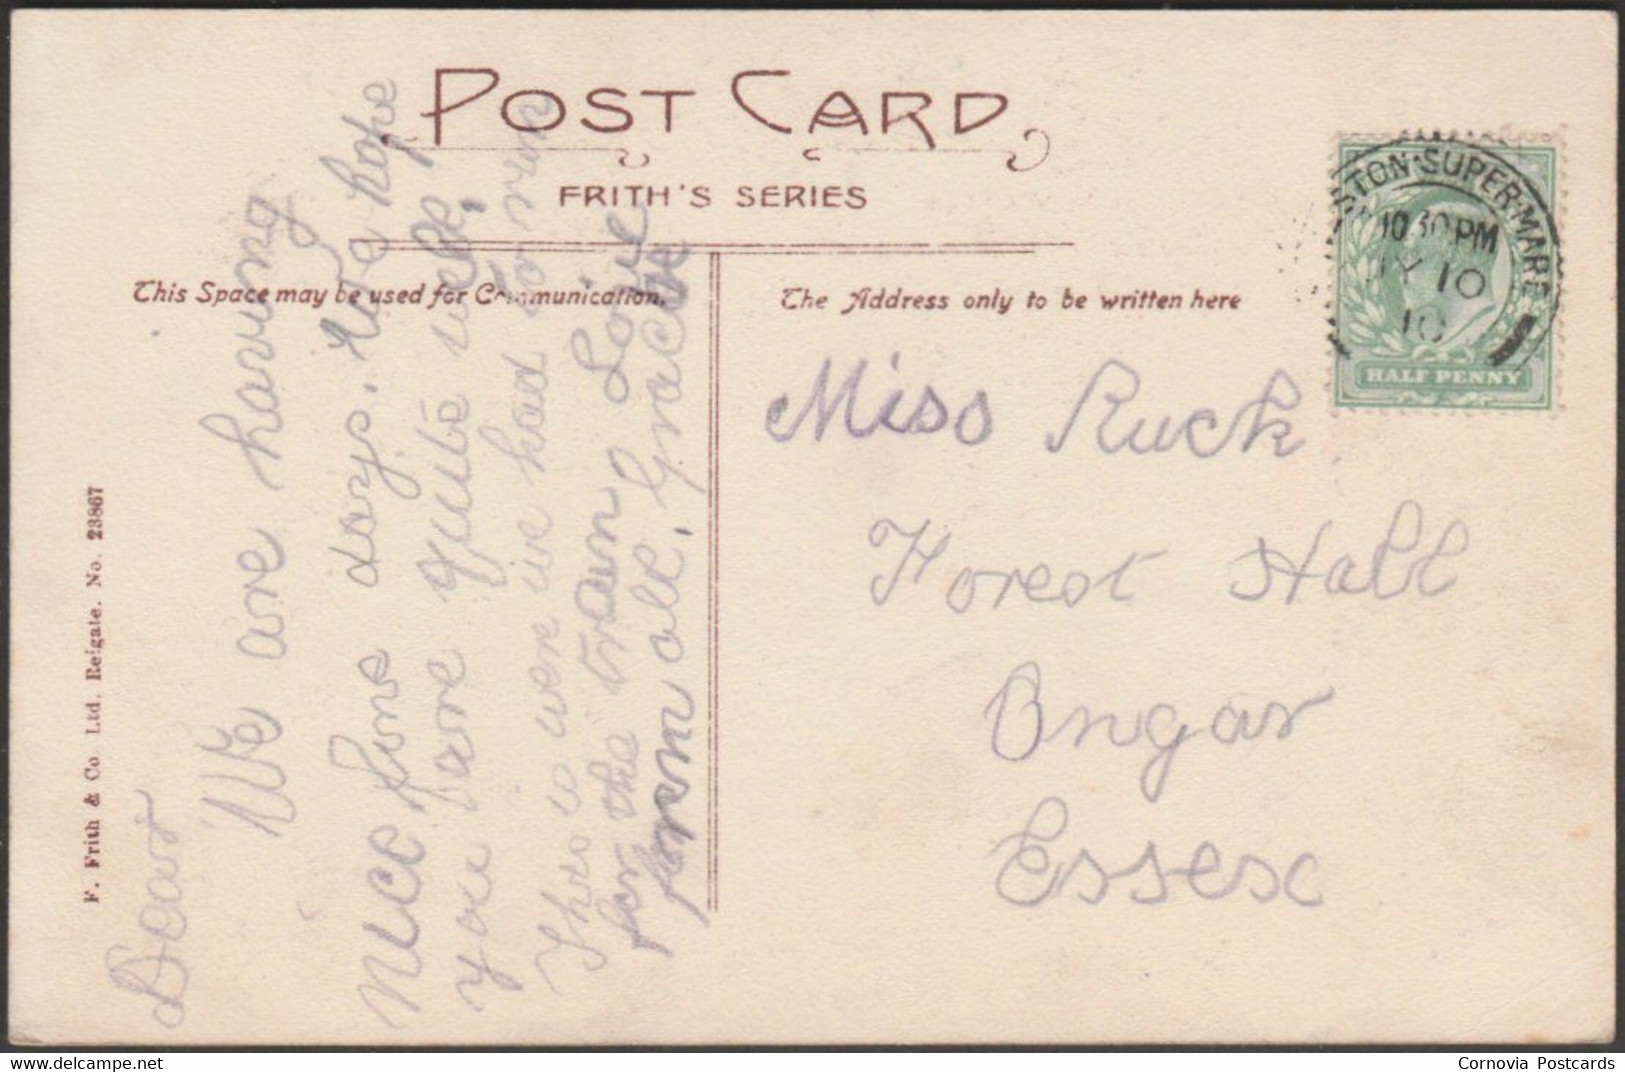 POST CARD
FRITH'S SERIES
This Space may be used for Communication.
The Address only to be written here
STON-SUPER-MARE
10 30 PM
Y 10
10
HALF PENNY
Miss Ruck
Forest Hall
Ongar
Essex
Dear
We are having
nice fine days. We hope
you are quite well.
This is were we had to run
for the train Love
from all. Gracie
F. Frith & Co. Ltd. Reigate. No. 23867
Cornovia Postcards